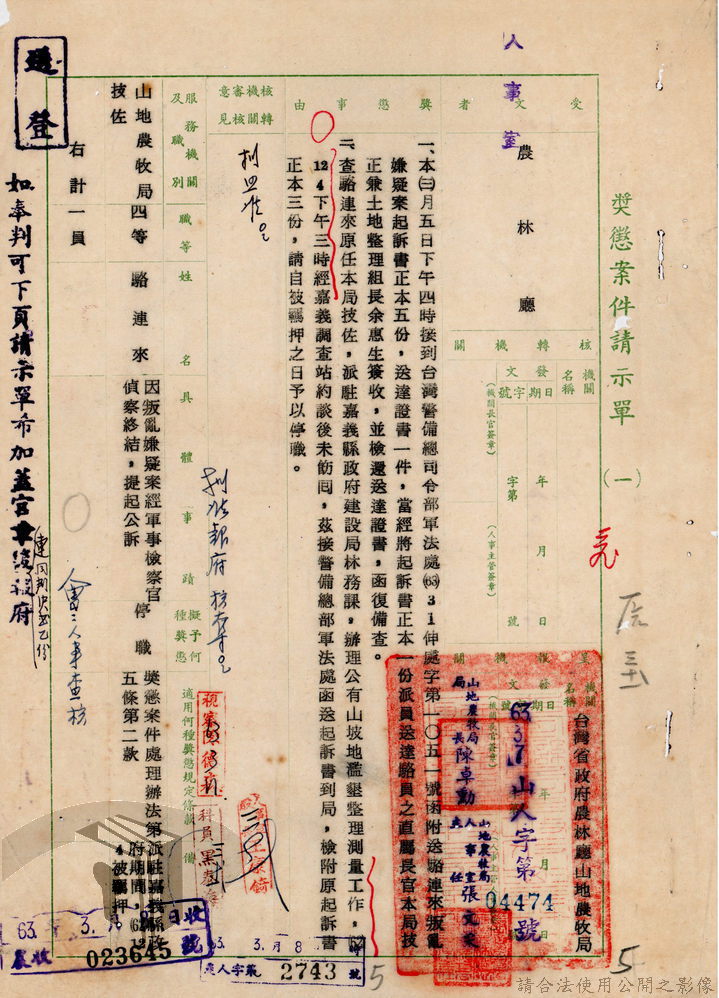 獎懲案件請示單(一)
台灣省政府農林廳山地農牧局
受文者
人事室
農林廳
核轉機關
機關名稱
發文
日期
字號
年月日
字第號
(機關長官簽章)
(人事主管簽章)
63 3 7 山人字第
04474
號
山地農牧局
局長陳卓勳
山地農牧局
人事室
主任
獎懲事由
一、本㈢月五日下午四時接到台灣警備總司令部軍法處(63) 3 1 伸處字第一〇五一號函附送駱連來叛亂
嫌疑案起訴書正本五份，送達證書一件，當經將起訴書正本一份派員送達駱員之直屬長官本局技
正兼土地整理組長余惠生簽收，並檢還送達證書，函復備查。
二、查駱連來原任本局技佐，派駐嘉義縣政府建設局林務課，辦理公有山坡地濫墾整理測量工作，62
12 4 下午三時經嘉義調查站約談後未飭回，茲接警備總部軍法處函送起訴書到局，檢附原起訴書
正本三份，請自被羈押之日予以停職。
核轉機關審核意見
服務機關及職別
職等
姓名
具體事蹟
擬予何種獎懲
適用何種獎懲規定條款
備
山地農牧局
技佐
四等
駱連來
因叛亂嫌疑案經軍事檢察官
偵察終結，提起公訴
停職
獎懲案件處理辦法第
五條第二款
派駐嘉義縣政
府期間，62 12
4 被羈押
右計一員
如奉判可下頁請示單希加蓋官章
會二人事查核
科員
63. 3. 月 8
2743
號
63. 3. 月 日收
農收 023645 號
5
5
請合法使用公開之影像